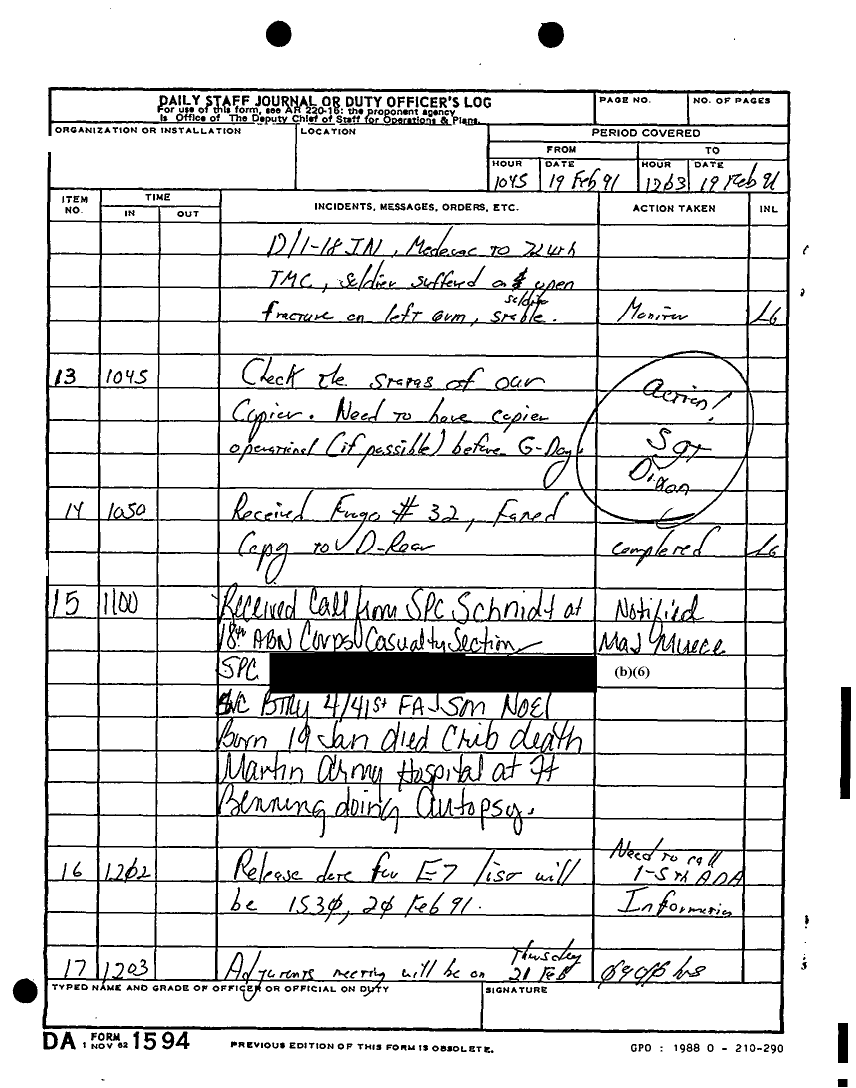 DAILY STAFF JOURNAL OR DUTY OFFICER'S LOG
For use of this form, see AR 220-15: the proponent agency
is Office of The Deputy Chief of Staff for Operations & Plans.
PAGE NO.
NO. OF PAGES
ORGANIZATION OR INSTALLATION
LOCATION
PERIOD COVERED
FROM
TO
HOUR
DATE
HOUR
DATE
1045
19 Feb 91
1203
19 Feb 91
ITEM NO.
TIME
IN
OUT
INCIDENTS, MESSAGES, ORDERS, ETC.
ACTION TAKEN
INL
D/1-18 IN, Medevac to
TMC, soldier suffered an open
fracture on left arm, soldier stable.
Monitor
LG
13
1045
Check the status of our
Copier. Need to have copier
operational (if possible) before G-Day.
Action!
Sgt
Dixon
14
1050
Received Frago # 32, Faxed
Copy to D-Rear
completed
LG
15
1100
Received Call from SPC Schnidt at
18th ABN Corps Casualty Section
SPC
Notified
Maj Muece
(b)(6)
SVC Btry 4/41st FA Son Noel
Born 19 Jan died Crib death
Martin Army Hospital at Ft
Benning doing Autopsy.
16
1202
Release date for E7 list will
be 1530, 20 Feb 91.
Need to call
1-5th ADA
Information
17
1203
Adjutants meeting will be on
Thursday
21 Feb
hrs
TYPED NAME AND GRADE OF OFFICER OR OFFICIAL ON DUTY
SIGNATURE
DA FORM 1594
1 NOV 62
PREVIOUS EDITION OF THIS FORM IS OBSOLETE.
GPO : 1988 O - 210-290